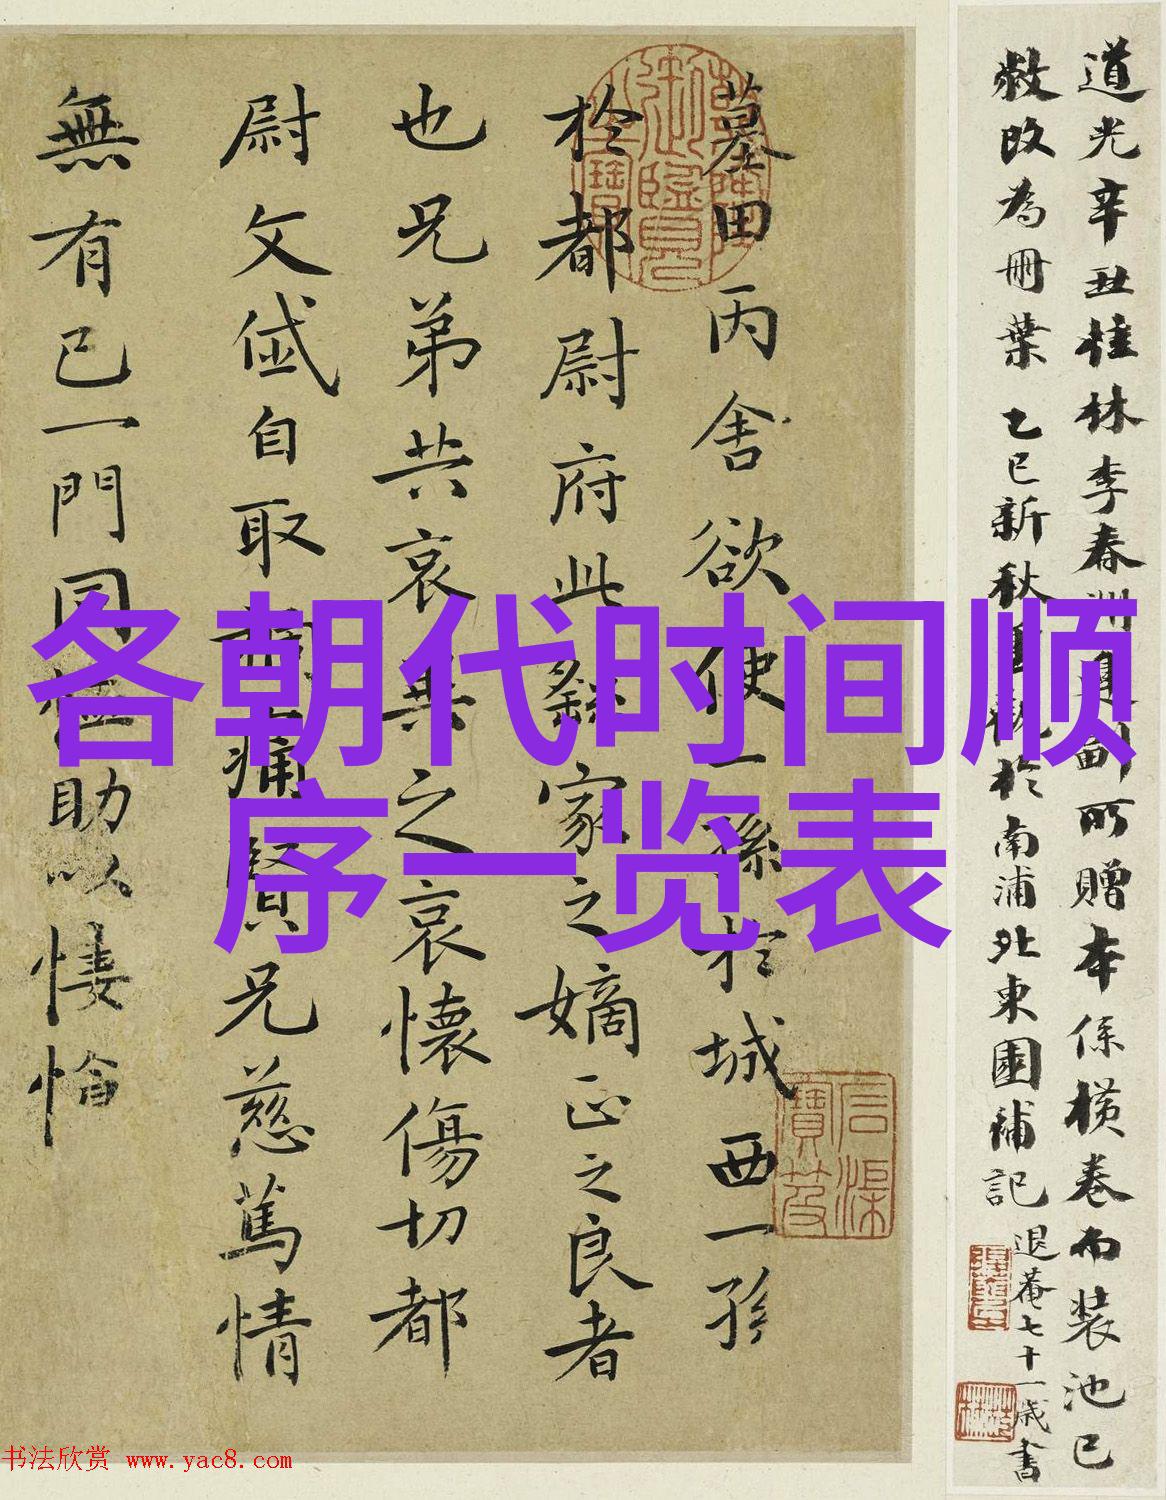 道光辛丑桂林李春洲員外所贈本係橫卷而裝池已
敝改為冊葉乙巳新秋重觀於南浦北東園補記
退菴七十一歲書
墓田丙舍欲使一孫於城西一孫
於都尉府此繇家之嫡正之良者
也兄弟共哀異之哀懷傷切都
尉文岱自取禍痛賢兄慈篤情
無有已一門同恤助以悽愴
各朝代时间顺
序一览表
书法欣赏 www.yac8.com